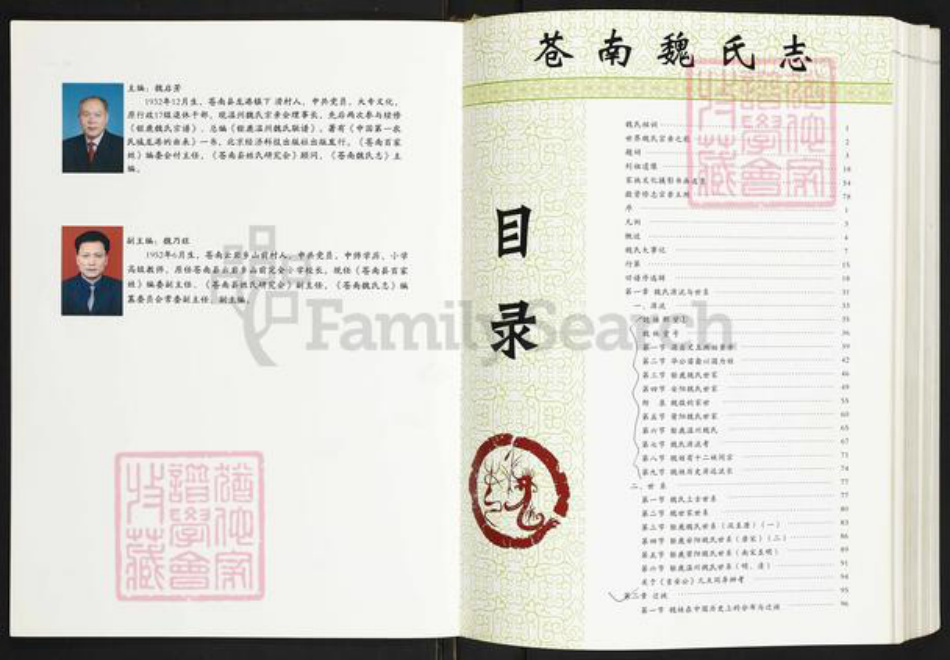 主编：魏启芳
1932年12月生，苍南县龙港镇下涝村人，中共党员，大专文化，
原行政17级退休干部，现温州魏氏宗亲会理事长，先后两次参与续修
《钜鹿魏氏宗谱》，总编《钜鹿温州魏氏联谱》，著有《中国第一农
民城龙港的由来》一书，北京经济科技出版社出版发行，《苍南百家
姓》编委会付主任，《苍南县姓氏研究会》顾问，《苍南魏氏志》主
编。
副主编：魏乃旺
1952年6月生，苍南云岩乡山前村人，中共党员，中师学历，小学
高级教师，原任苍南县云岩乡山前完全小学校长，现任《苍南县百家
姓》编委副主任，《苍南县姓氏研究会》副主任，《苍南魏氏志》编
纂委员会常委副主任，副主编。
苍南魏氏志
目录
魏氏祖训 1
世界魏氏宗亲之歌 2
题词 3
列祖遗像 16
家族文化摄影书画选页 54
78
序 1
凡例 3
概述 4
魏氏大事记 7
行第 15
旧谱序选辑 18
第一章 魏氏源流与世系 31
一、源流 33
35
36
39
42
第三节 钜鹿魏氏世家 46
第四节 安阳魏氏世家 49
55
第五节 莆阳魏氏世家 60
第六节 钜鹿温州魏氏 65
第七节 魏氏源流考 67
第八节 魏姓有十二姓同宗 71
第九节 魏姓历史源远流长 74
二、世系 77
第一节 魏氏上古世系 77
第二节 魏世家世系 80
第三节 钜鹿魏氏世系（汉至唐）（一） 83
第四节 钜鹿安阳魏氏世系（唐宋）（二） 86
第五节 钜鹿莆阳魏氏世系（南宋至明） 89
第六节 钜鹿温州魏氏世系（明、清） 91
94
第二章 迁徙 95
第一节 魏姓在中国历史上的分布与迁徙 96
FamilySearch